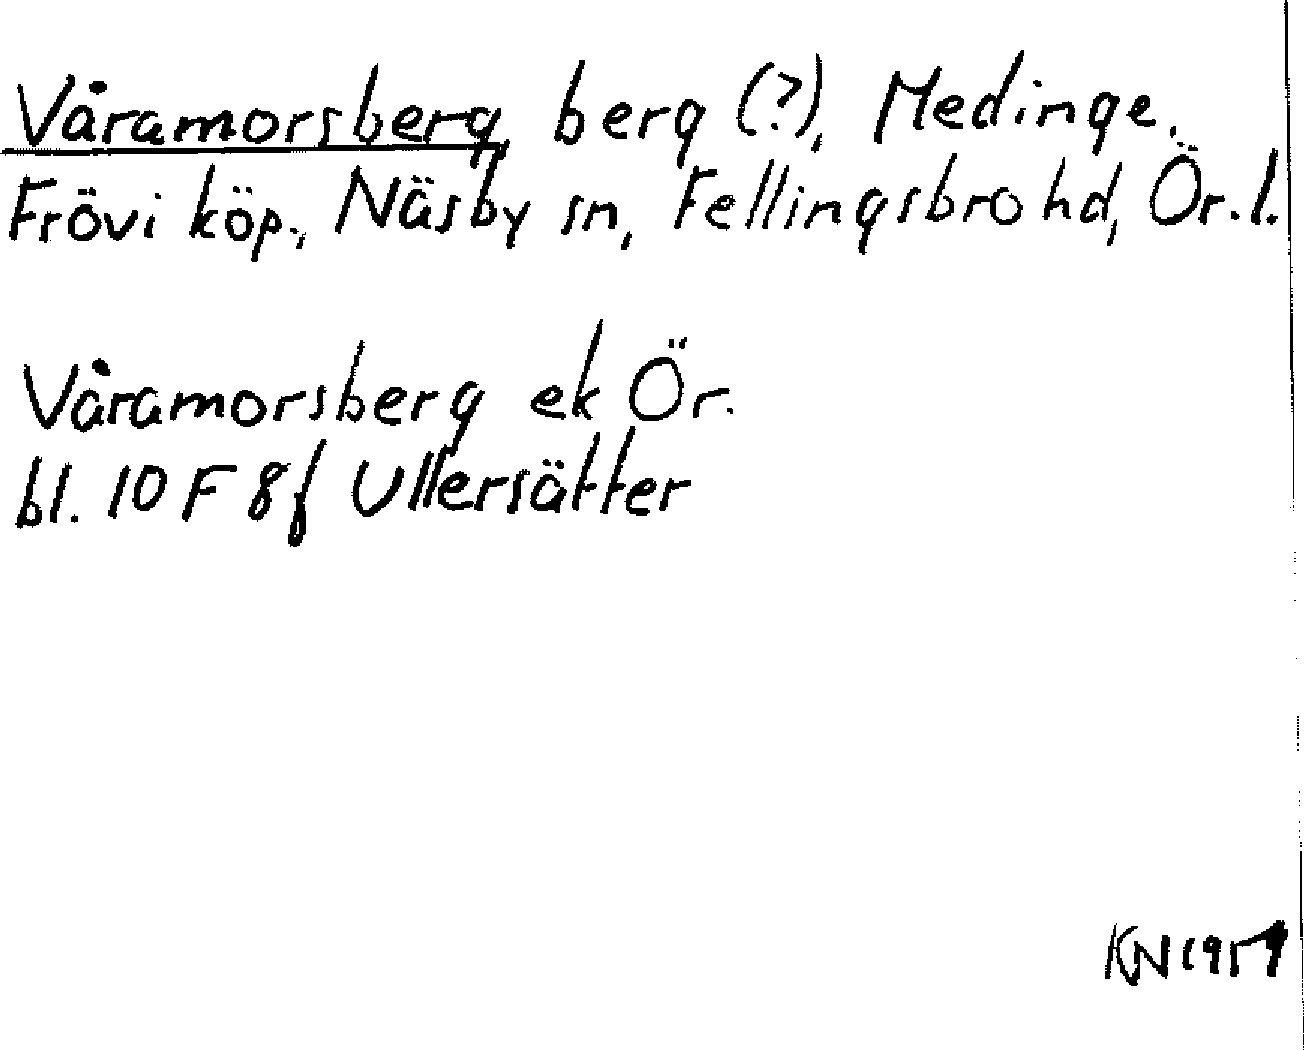 Våramorsberg, berg (?), Medinge,
Frövi köp., Näsby sn, Fellingsbro hd, Ör. l.
Våramorsberg ek Ör.
bl. 10 F 8 f Ullersätter
KN 1959